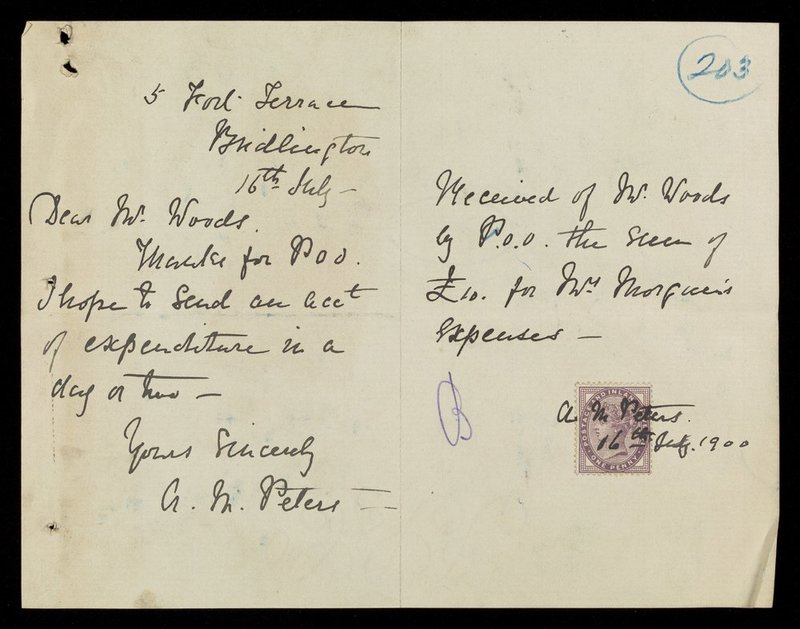 5 Fort Terrace
Bridlington
16th July -
Dear Mr. Woods.
Thanks for P.O.O.
I hope to send an acct
of expenditure in a
day or two -
Yours Sincerely
A. M. Peters
203
Received of Mr. Woods
by P.O.O. the sum of
£10. for Mrs
Expenses -
B
POSTAGE AND INLAND
A. M. Peters.
16th July. 1900
ONE PENNY